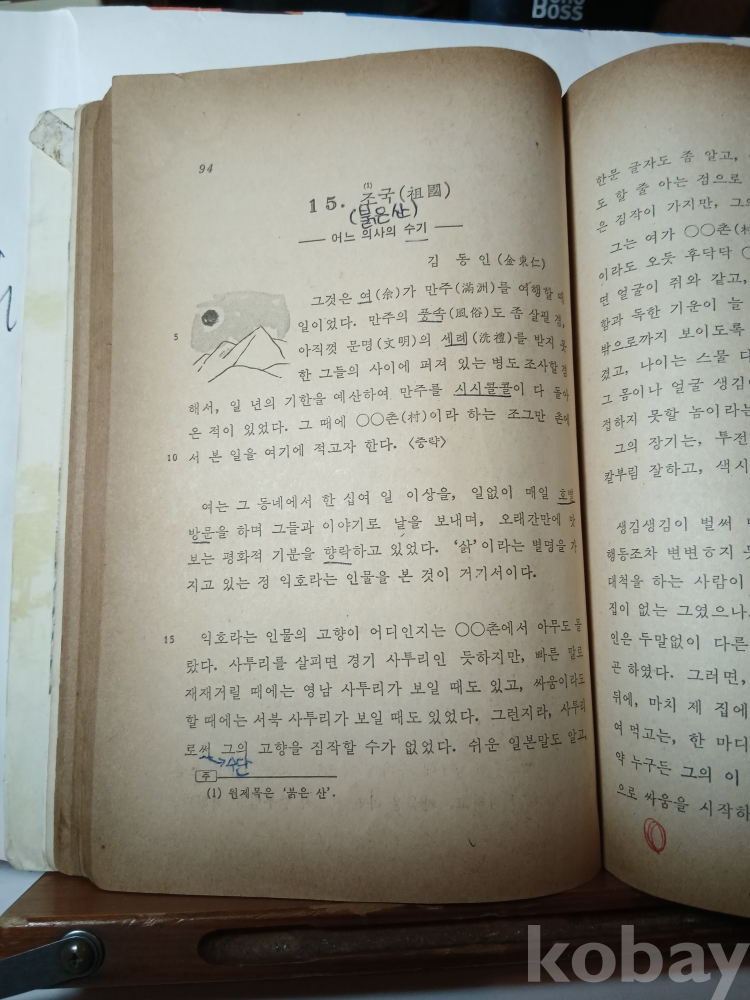 BOSS
94
15. 조국(祖國)
(1)
(붉은산)
── 어느 의사의 수기 ──
김 동 인 (金東仁)
그것은 여(余)가 만주(滿洲)를 여행할 때
일이었다. 만주의 풍속(風俗)도 좀 살필 겸,
5
아직껏 문명(文明)의 세례(洗禮)를 받지 못
한 그들의 사이에 퍼져 있는 병도 조사할 겸
해서, 일 년의 기한을 예산하여 만주를 시시콜콜이 다 돌아
온 적이 있었다. 그 때에 ○○촌(村)이라 하는 조그만 촌에
10 서 본 일을 여기에 적고자 한다. 〈중략〉
여는 그 동네에서 한 십여 일 이상을, 일없이 매일 호별
방문을 하며 그들과 이야기로 날을 보내며, 오래간만에 맛
보는 평화적 기분을 향락하고 있었다. ‘삵’이라는 별명을 가
지고 있는 정 익호라는 인물을 본 것이 거기서이다.
15 익호라는 인물의 고향이 어디인지는 ○○촌에서 아무도 몰
랐다. 사투리를 살피면 경기 사투리인 듯하지만, 빠른 말로
재재거릴 때에는 영남 사투리가 보일 때도 있고, 싸움이라도
할 때에는 서북 사투리가 보일 때도 있었다. 그런지라, 사투리
로써 그의 고향을 짐작할 수가 없었다. 쉬운 일본말도 알고,
→수단
주
(1) 원제목은 ‘붉은 산’.
한문 글자도 좀 알고,
도 할 줄 아는 점으로
은 짐작이 가지만, 그의
그는 여가 ○○촌(村
이라도 오듯 후닥닥
면 얼굴이 쥐와 같고,
함과 독한 기운이 늘
밖으로까지 보이도록
겼고, 나이는 스물 다
그 몸이나 얼굴 생김
접하지 못할 놈이라는
그의 장기는, 투전
칼부림 잘하고, 색시
생김생김이 벌써
행동조차 변변ㅎ지 못
대척을 하는 사람이
집이 없는 그였으나,
인은 두말없이 다른
곤 하였다. 그러면,
뒤에, 마치 제 집에
여 먹고는, 한 마디
약 누구든 그의 이
으로 싸움을 시작하
kobay